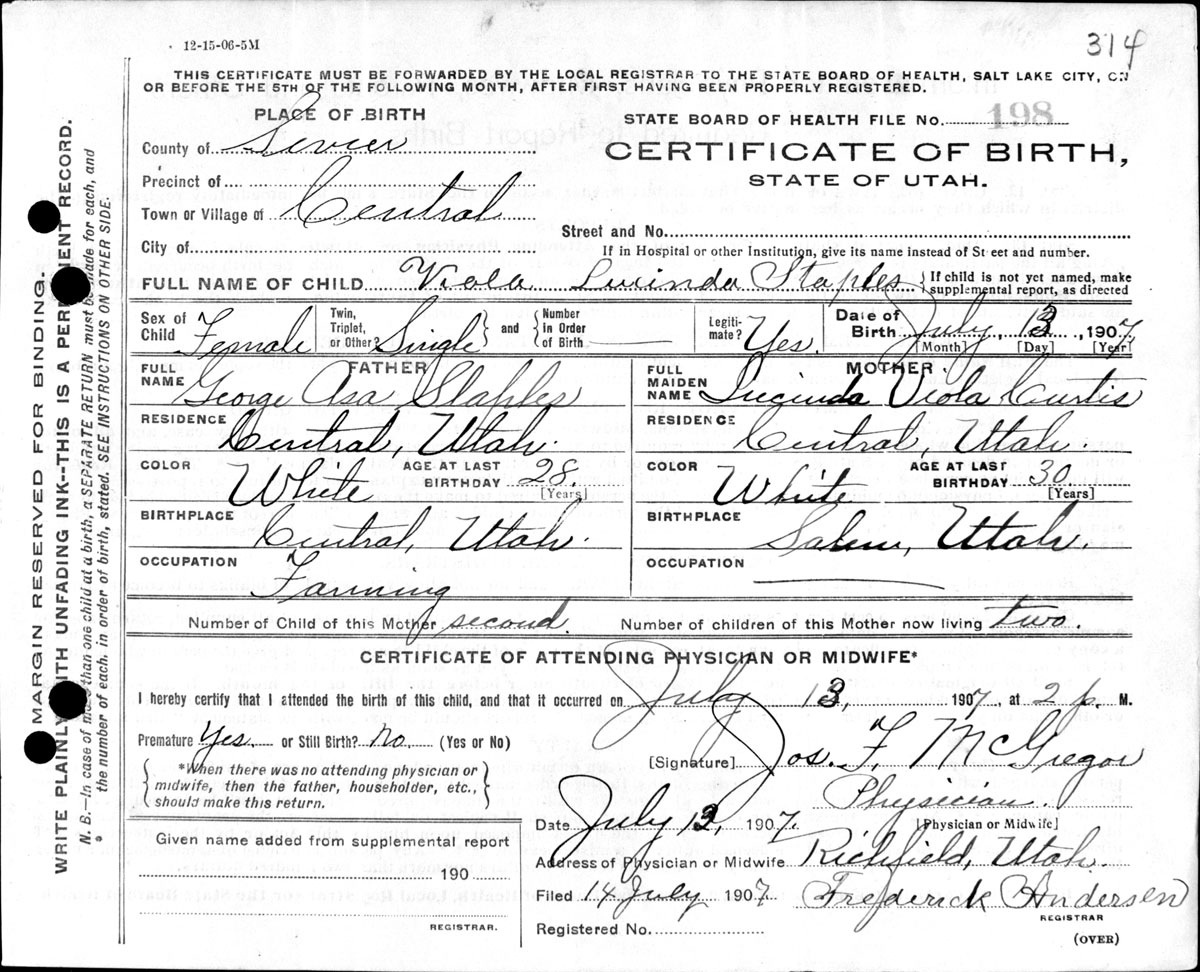 12-15-06-5M
314
THIS CERTIFICATE MUST BE FORWARDED BY THE LOCAL REGISTRAR TO THE STATE BOARD OF HEALTH, SALT LAKE CITY, ON
OR BEFORE THE 5TH OF THE FOLLOWING MONTH, AFTER FIRST HAVING BEEN PROPERLY REGISTERED.
PLACE OF BIRTH
STATE BOARD OF HEALTH FILE No. 198
County of Sevier
CERTIFICATE OF BIRTH,
Precinct of
STATE OF UTAH.
Town or Village of Central
Street and No.
City of
If in Hospital or other Institution, give its name instead of Street and number.
FULL NAME OF CHILD Viola Lucinda Staples { If child is not yet named, make
supplemental report, as directed
Sex of Child Female Twin, Triplet, or Other? Single } and { Number in Order of Birth Legiti-mate? Yes. Date of Birth July, 13, 1907
[Month] [Day] [Year]
FATHER
FULL NAME George Asa Staples
RESIDENCE Central, Utah.
COLOR White AGE AT LAST BIRTHDAY 28. [Years]
BIRTHPLACE Central, Utah.
OCCUPATION Farming
MOTHER
FULL MAIDEN NAME Lucinda Viola Curtis
RESIDENCE Central, Utah.
COLOR White AGE AT LAST BIRTHDAY 30 [Years]
BIRTHPLACE Salem, Utah.
OCCUPATION
Number of Child of this Mother second. Number of children of this Mother now living two.
CERTIFICATE OF ATTENDING PHYSICIAN OR MIDWIFE*
I hereby certify that I attended the birth of this child, and that it occurred on July 13, 1907, at 2 p. M.
Premature Yes. or Still Birth? no. (Yes or No)
[Signature] Jos. F. McGregor
{ *When there was no attending physician or
midwife, then the father, householder, etc.,
should make this return. }
Physician.
[Physician or Midwife]
Date July 13, 1907.
Given name added from supplemental report
190
REGISTRAR.
Address of Physician or Midwife Richfield, Utah.
Filed 14 July 1907 Frederick Andersen
REGISTRAR
Registered No.
(OVER)
MARGIN RESERVED FOR BINDING.
WRITE PLAINLY WITH UNFADING INK--THIS IS A PERMANENT RECORD.
N. B.—In case of more than one child at a birth, a SEPARATE RETURN must be made for each, and
the number of each, in order of birth, stated. SEE INSTRUCTIONS ON OTHER SIDE.
*